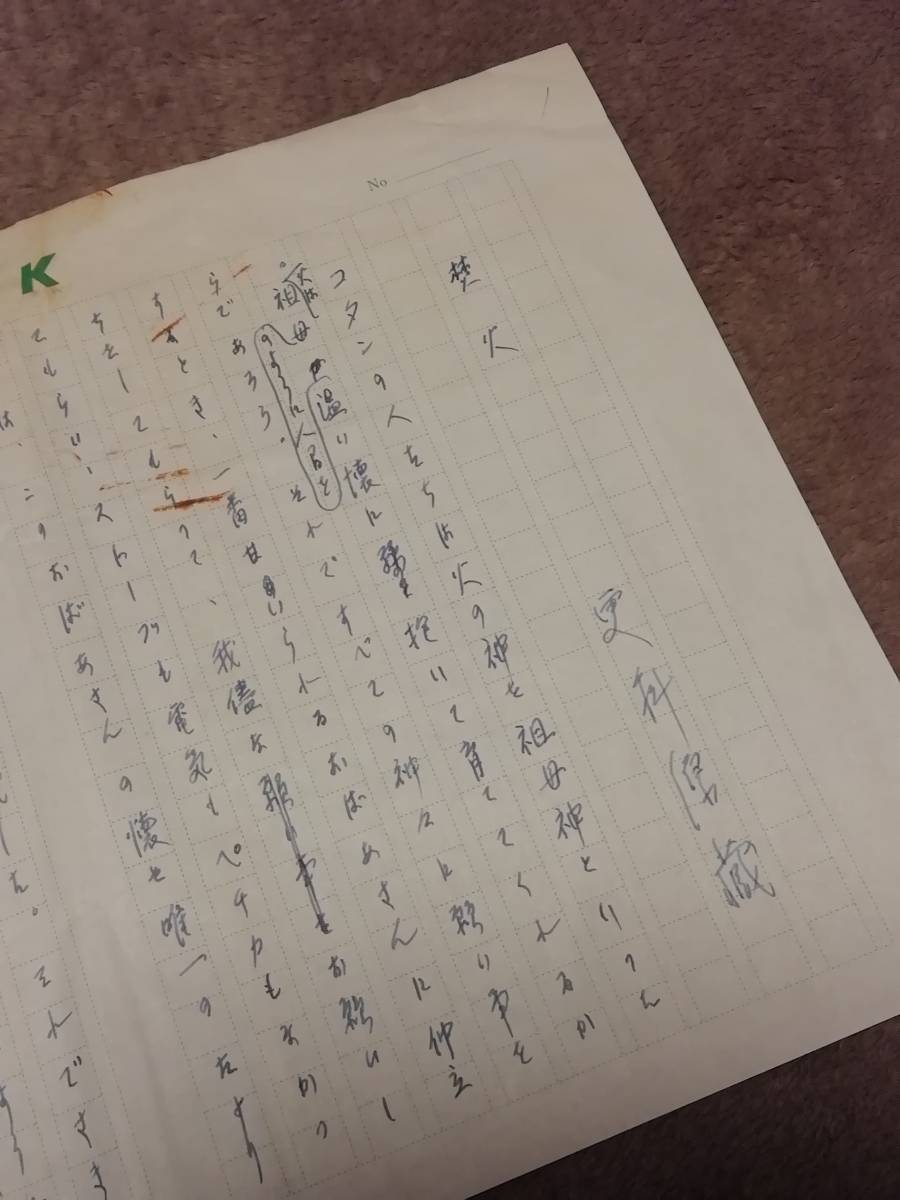 No
焚火
更科源蔵
コタンの人たちは火の神を祖母神といつた
。火は祖母の温い懐に抱いて育てくれるか
のように人間を
らであろう。それですべての神々に願い事を
するとき、一番甘えられるおばあさんに仲立
ちをしてもらって、我儘な願い事もお願いし
てもらい、ストーブも電気もペチカもなかつ
は、このおばあさんの懐を唯一のたより
た。それでさま
K